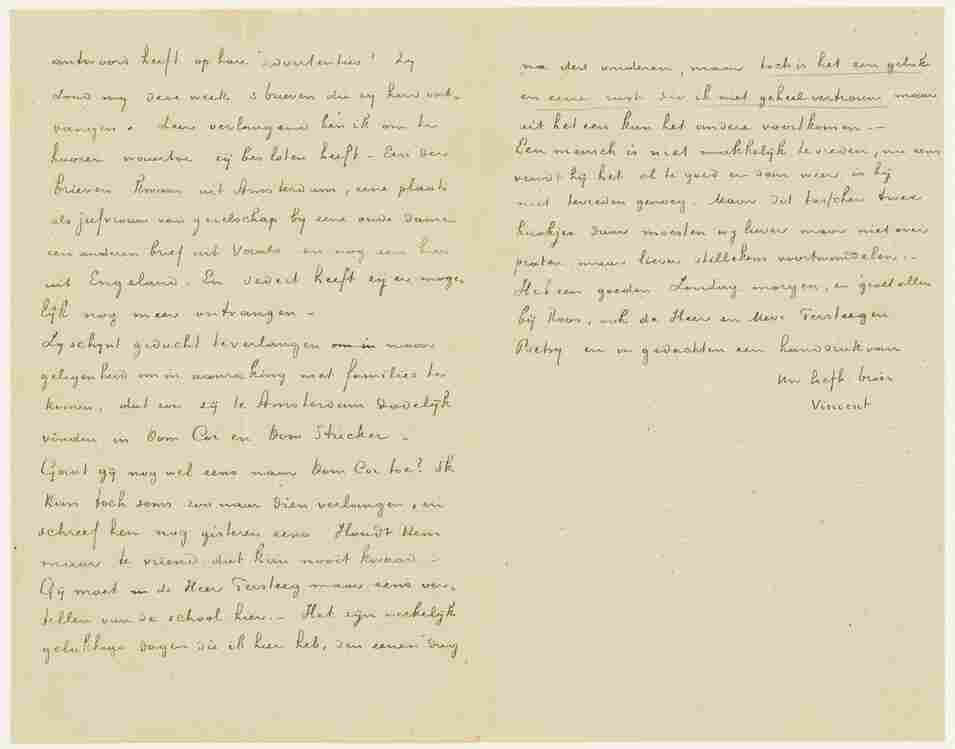 antwoord heeft op hare advertenties! Zy
zond my deze week 3 brieven die zy had ont-
vangen. Zeer verlangend ben ik om te
hooren waartoe zij besloten heeft - Een der
brieven kwam uit Amsterdam, eene plaats
als juffrouw van gezelschap bij eene oude dame
een anderen brief uit en nog een hier
uit Engeland. En sedert heeft zy er moge-
lijk nog meer ontvangen -
Zy schynt geducht te verlangen om in naar
gelegenheid om in aanraking met families te
komen, dat zou zij te Amsterdam dadelijk
vinden in Oom Cor en Oom Stricker -
Gaat gij nog wel eens naar Oom Cor toe? Ik
kan toch soms zoo naar dien verlangen, en
schreef hen nog gisteren eens Houdt Hem
maar te vriend dat kan nooit kwaad -
Gij moet in de Heer Tersteeg maar eens ver-
tellen van de school hier.- Het zijn werkelijk
gelukkige dagen die ik hier heb, den eenen dag
na den anderen, maar toch is het een geluk
en eene rust die ik niet geheel vertrouw maar
uit het een kan het andere voortkomen.-
Een mensch is niet makkelijk tevreden, nu eens
vindt hij het al te goed en dan weer is hij
niet tevreden genoeg. Maar dit tusschen twee
haakjes daar moesten wy liever maar niet over
praten maar liever stillekens voortwandelen.-
Heb een goeden Zondag morgen, en groet allen
bij Roos, ook de Heer en Mevr Tersteeg en
Betsy en in gedachten een handdruk van
Uw liefh broer
Vincent